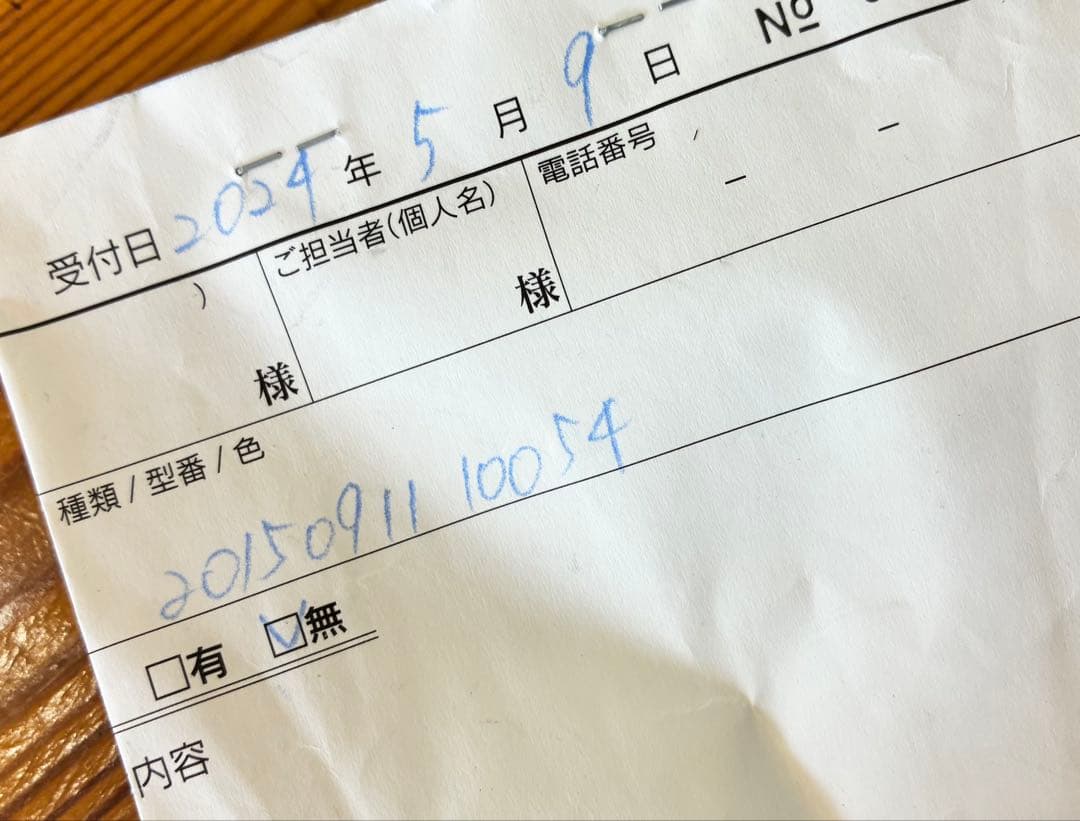 受付日 2024 年 5 月 9 日 №
) ご担当者(個人名) 電話番号
様 様 － －
種類 / 型番 / 色
20150911 10054
□有 ☑無
内容